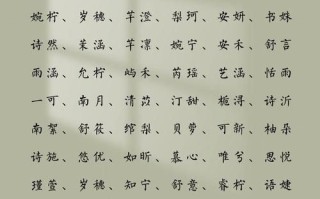 婉柠、岁穗、芊澄、梨珂、安妍、书妹
诗然、茉涵、芊凛、婉宁、安禾、舒言
雨涵、允柠、屿禾、芮瑶、艺涵、恬雨
一可、南月、清苡、汀甜、栀浔、诗沂
南絮、舒莜、绾梨、贝萝、可新、柚朵
诗施、悠优、如昕、慕心、唯兮、思悦
瑾萱、岁穗、知宁、舒意、睿柠、语婕